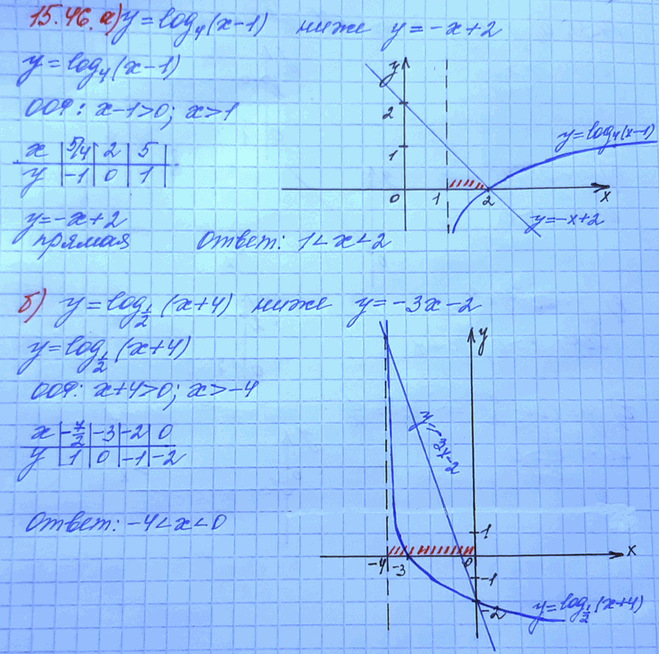 15.46. а) y = log₄(x-1) ниже y = -x+2
y = log₄(x-1)
ООФ: x-1>0; x>1
x | 5/4 | 2 | 5 |
y | -1 | 0 | 1 |
y = -x+2
прямая
Ответ: 1<x<2
y
2
1
0 1 2 x
y = log₄(x-1)
y = -x+2
б) y = log_{1/2}(x+4) ниже y = -3x-2
y = log_{1/2}(x+4)
ООФ: x+4>0; x>-4
x | -7/2 | -3 | -2 | 0
y | 1 | 0 | -1 | -2
Ответ: -4<x<0
y
y = -3x-2
1
-4 -3 0 x
-1
-2
y = log_{1/2}(x+4)